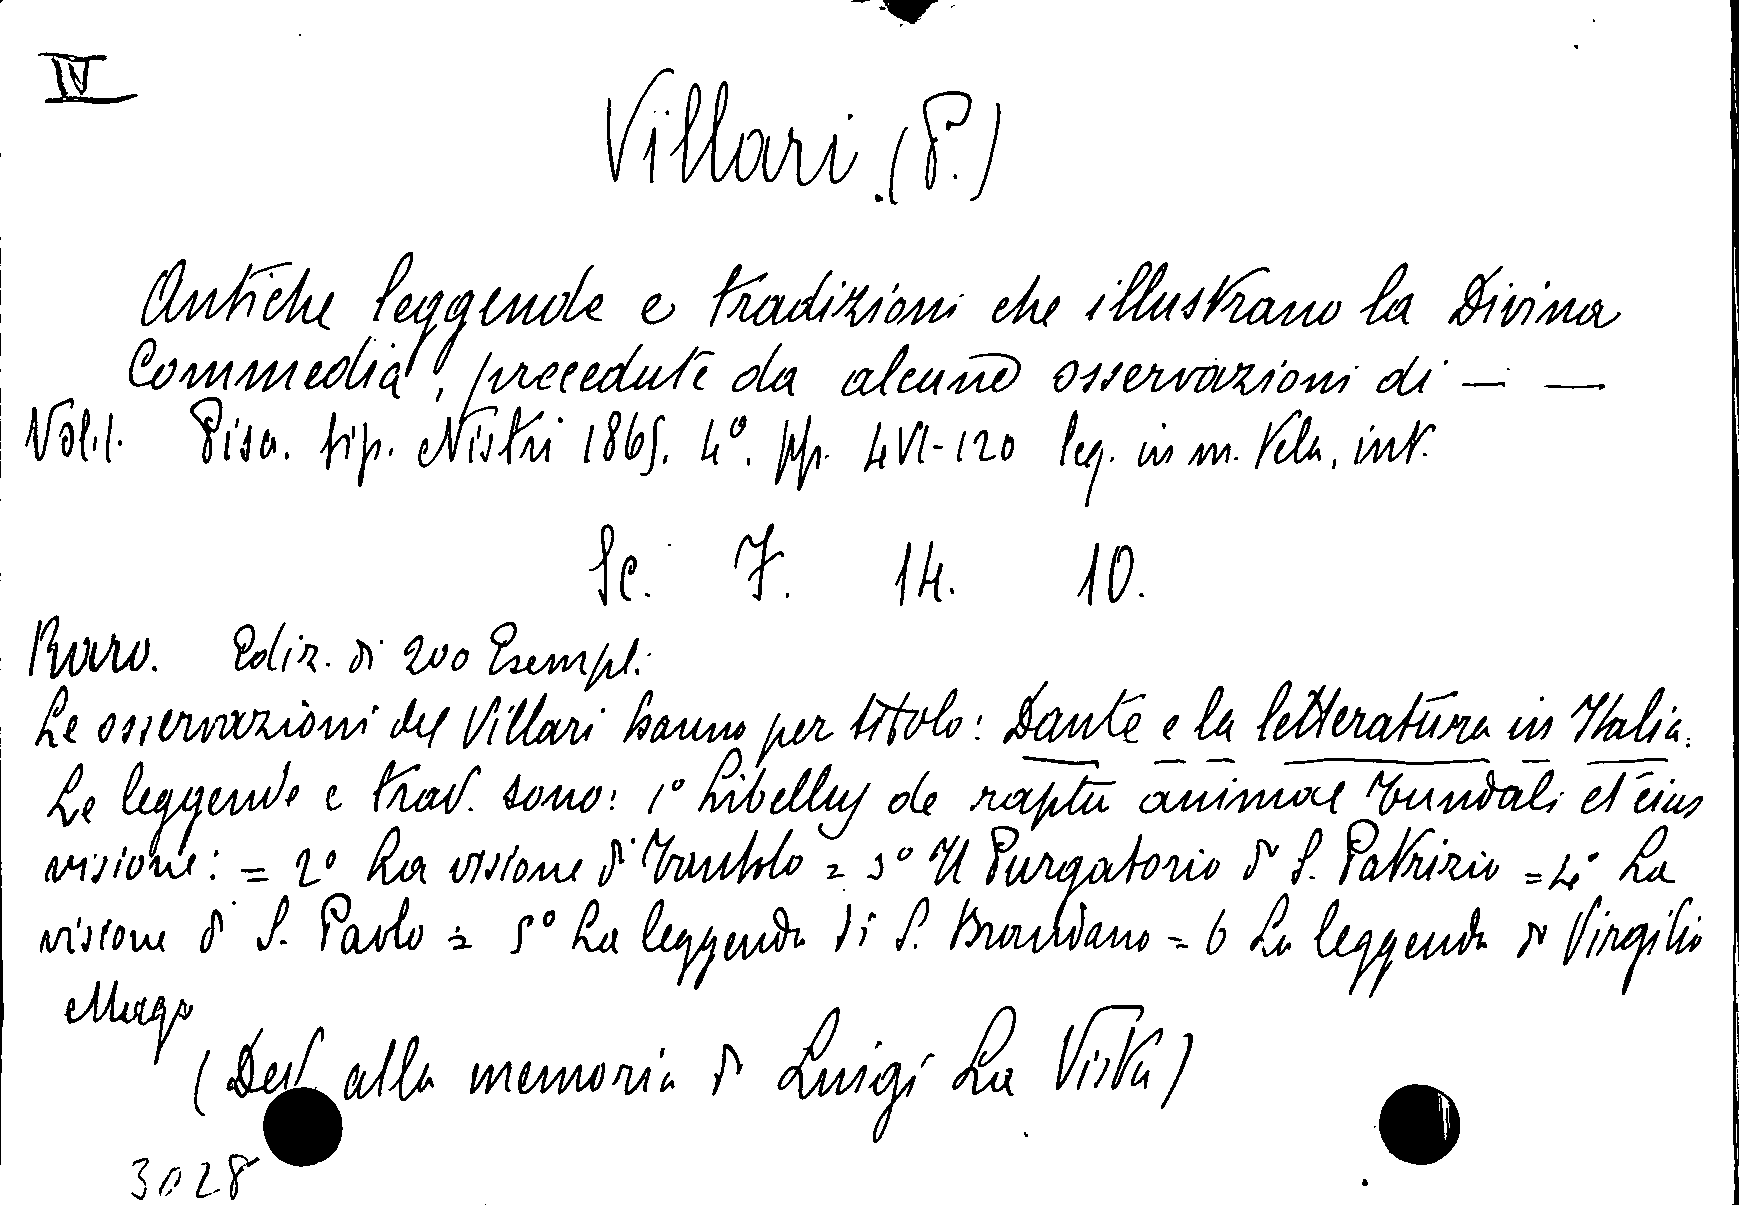 IV
Villari (P.)
Antiche leggende e tradizioni che illustrano la Divina
Commedia, precedute da alcune osservazioni di — —
Vol. 1. Pisa. tip. Nistri 1865. 4°. pp. LVI-120 leg. in m. tela, int.
Sc. 7. 14. 10.
Raro. Ediz. di 200 Esempl.
Le osservazioni del Villari hanno per titolo: Dante e la letteratura in Italia.
Le leggende e trad. sono: 1° Libellus de raptu animae Tundali et eius
visione: = 2° La visione di Tantolo = 3° Il Purgatorio di S. Patrizio = 4° La
visione di S. Paolo = 5° La leggenda di S. Brandano = 6 La leggenda di Virgilio
Mago
(Ded alla memoria di Luigi La Vista)
3028